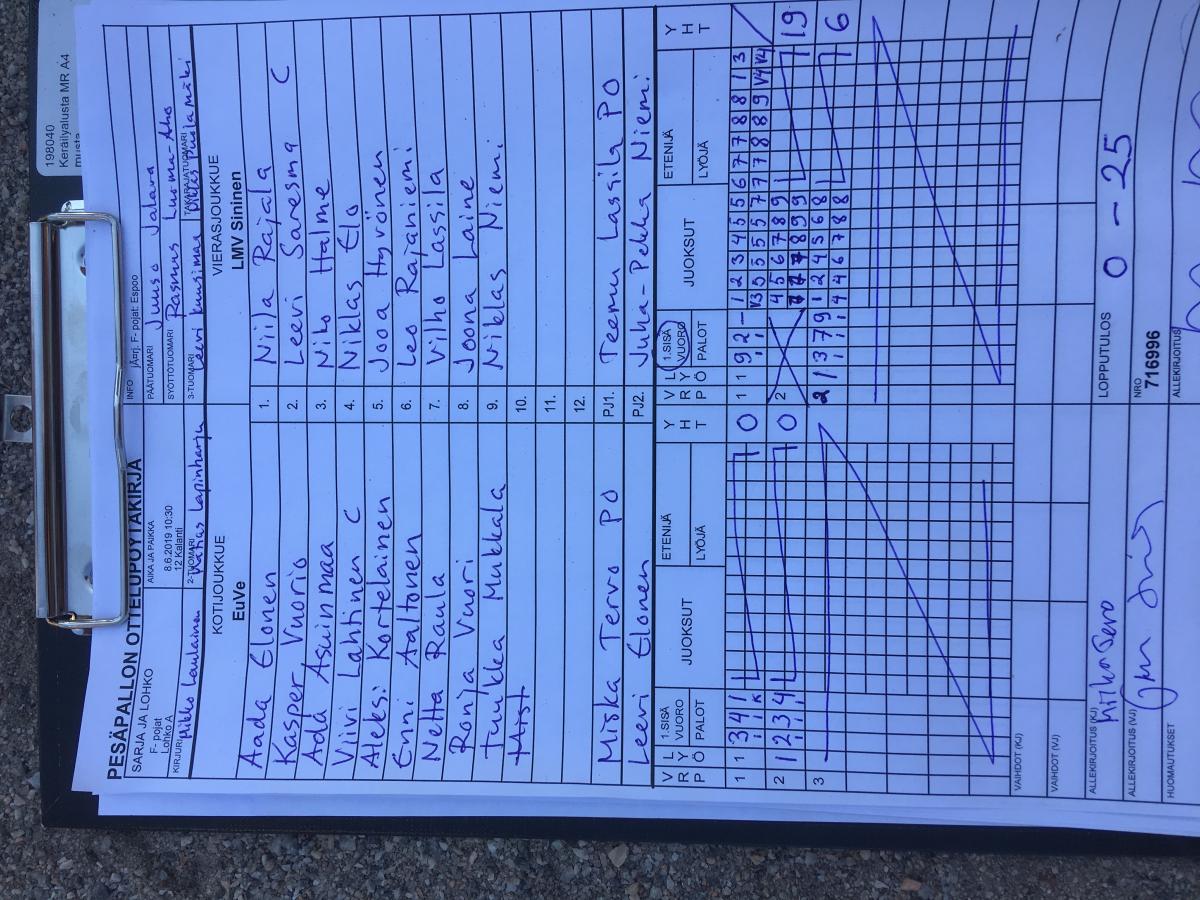 198040
Keräilyalusta MR A4
musta
PESÄPALLON OTTELUPÖYTÄKIRJA
SARJA JA LOHKO
F- pojat
Lohko A
AIKA JA PAIKKA
8.6.2019 10:30
12 Kalanti
INFO järj. F- pojat: Espoo
PÄÄTUOMARI Juuso Jalava
SYÖTTÖTUOMARI Rasmus Luoma-Aho
KIRJURI Mikko Laulainen
2-TUOMARI Matias Lapinharju
3-TUOMARI Leevi Kuusimaa
TAKARAJATUOMARI
KOTIJOUKKUE
EuVe
VIERASJOUKKUE
LMV Sininen
Aada Elonen 1. Niila Rajala
Kasper Vuorio 2. Leevi Saresma C
Ada Asuinmaa 3. Niko Halme
Viivi Lahtinen C 4. Niklas Elo
Aleksi Kortelainen 5. Jooa Hyvönen
Enni Aaltonen 6. Leo Rajaniemi
Netta Raula 7. Vilho Lassila
Ronja Vuori 8. Joona Laine
Tuukka Mukkala 9. Niklas Niemi
10.
11.
12.
Miska Tervo PO PJ1. Teemu Lassila PO
Leevi Elonen PJ2. Juha-Pekka Niemi
V R P L Y Ö 1.SISÄ VUORO PALOT JUOKSUT ETENIJÄ LYÖJÄ Y H T V R P L Y Ö 1.SISÄ VUORO PALOT JUOKSUT ETENIJÄ LYÖJÄ Y H T
1 1 3 4 1 0 1 1 9 2 - 1 2 3 4 5 5 6 7 7 8 8 1 3
V3 5 5 5 5 7 7 7 8 8 9 V4 V4
2 1 2 3 4 0 2 4 5 6 7 8 9 1 19
3 2 1 3 7 9 1 2 4 5 6 8 1 6
1 4 4 6 7 8 8
VAIHDOT (KJ)
VAIHDOT (VJ)
LOPPUTULOS 0 - 25
ALLEKIRJOITUS (KJ)
ALLEKIRJOITUS (VJ)
NRO
716996
HUOMAUTUKSET
ALLEKIRJOITUS